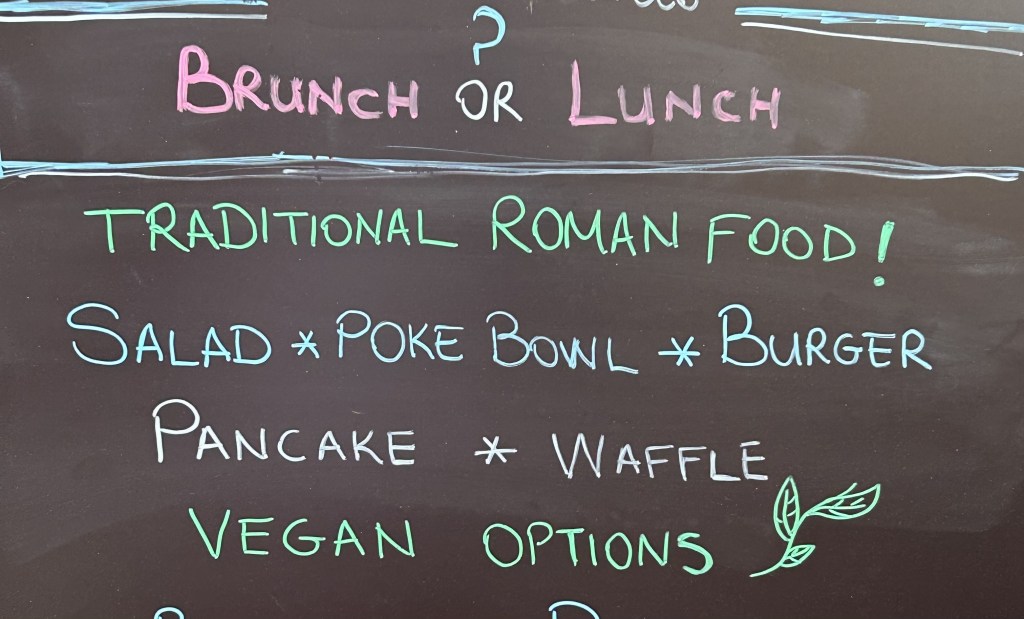 ?
BRUNCH OR LUNCH
TRADITIONAL ROMAN FOOD!
SALAD * POKE BOWL * BURGER
PANCAKE * WAFFLE
VEGAN OPTIONS